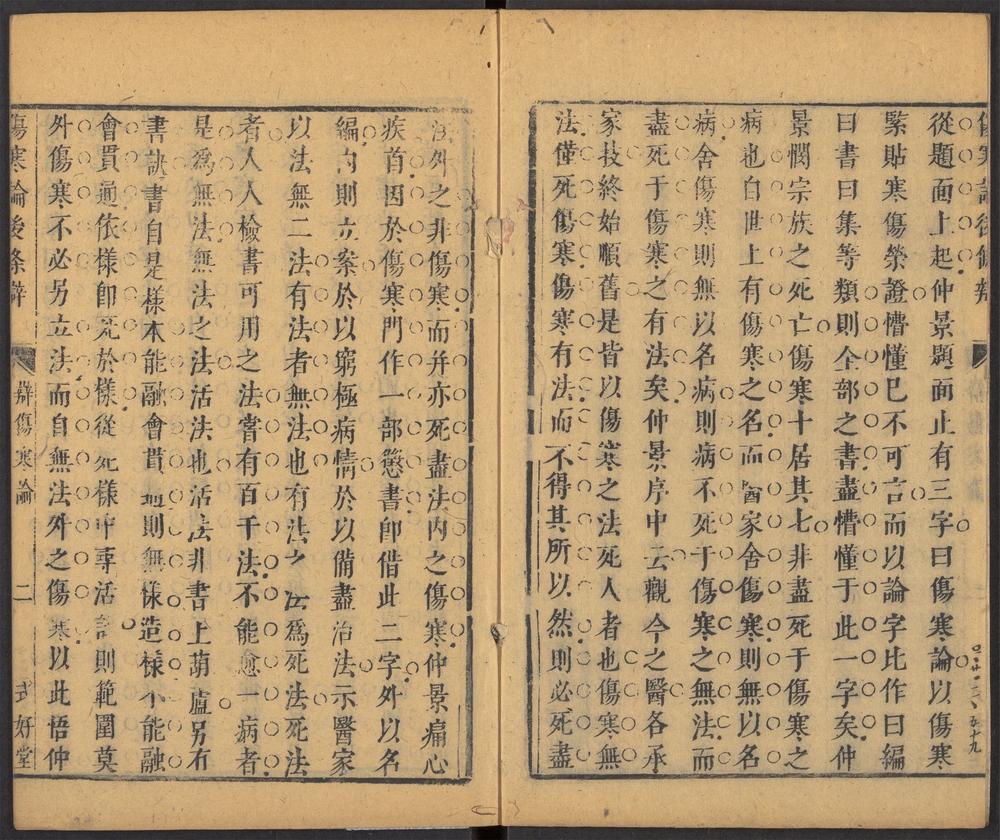 從題面上起仲景題面止有三字曰傷寒論以傷寒
緊貼寒傷榮證懵懂已不可言而以論字比作曰編
曰書曰集等類則全部之書盡懵懂于此一字矣仲
景憫宗族之死亡傷寒十居其七非盡死于傷寒之
病也自世上有傷寒之名而醫家舍傷寒則無以名
病舍傷寒則無以名病則病不死于傷寒之無法而
盡死于傷寒之有法矣仲景序中云觀今之醫各承
家技終始順舊是皆以傷寒之法死人者也傷寒無
法僅死傷寒傷寒有法而不得其所以然則必死盡
法外之非傷寒而并亦死盡法內之傷寒仲景痛心
疾首因於傷寒門作一部懲書卽借此二字外以名
編內則立案於以窮極病情於以備盡治法示醫家
以法無二法有法者無法也有法之法爲死法死法
者人人檢書可用之法嘗有百千法不能愈一病者
是爲無法無法之法活法也活法非書上葫蘆另有
書訣書自是樣本能融會貫通則無樣造樣不能融
會貫通依樣卽死於樣從死樣中尋活則範圍莫
外傷寒不必另立法而自無法外之傷寒以此悟仲
傷寒論後條辯
辯傷寒論
二
式好堂